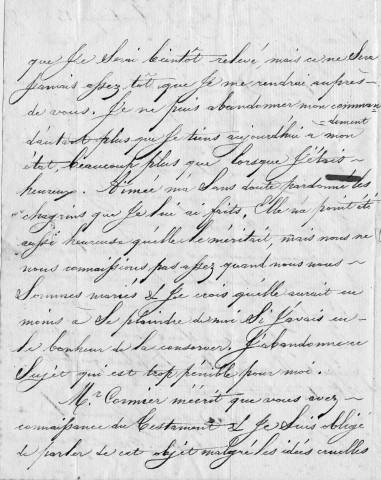 que Je Serai bientôt relevé, mais ce ne Sera
Jamais assez tôt que Je me rendrai auprès
de vous. Je ne puis abandonner mon comman
-dement
d'autant plus que Je tiens aujourd'hui a mon
état, beaucoup plus que lorsque J'étais
heureux. Aimée m'a Sans doute pardonné les
chagrins que Je lui ai faits. Elle n'a point été
aussi heureuse qu'elle le méritait, mais nous ne
nous connaissions pas assez quand nous nous
Sommes mariés & Je crois qu'elle aurait eu
moins a Se plaindre de moi Si J'avais eu
le bonheur de la conserver. J'abandonne ce
Sujet qui est trop pénible pour moi.
Mr. Cormier m'écrit que vous avez
connaissance du Testament & Je Suis obligé
de parler de cet objet malgré les idées cruelles